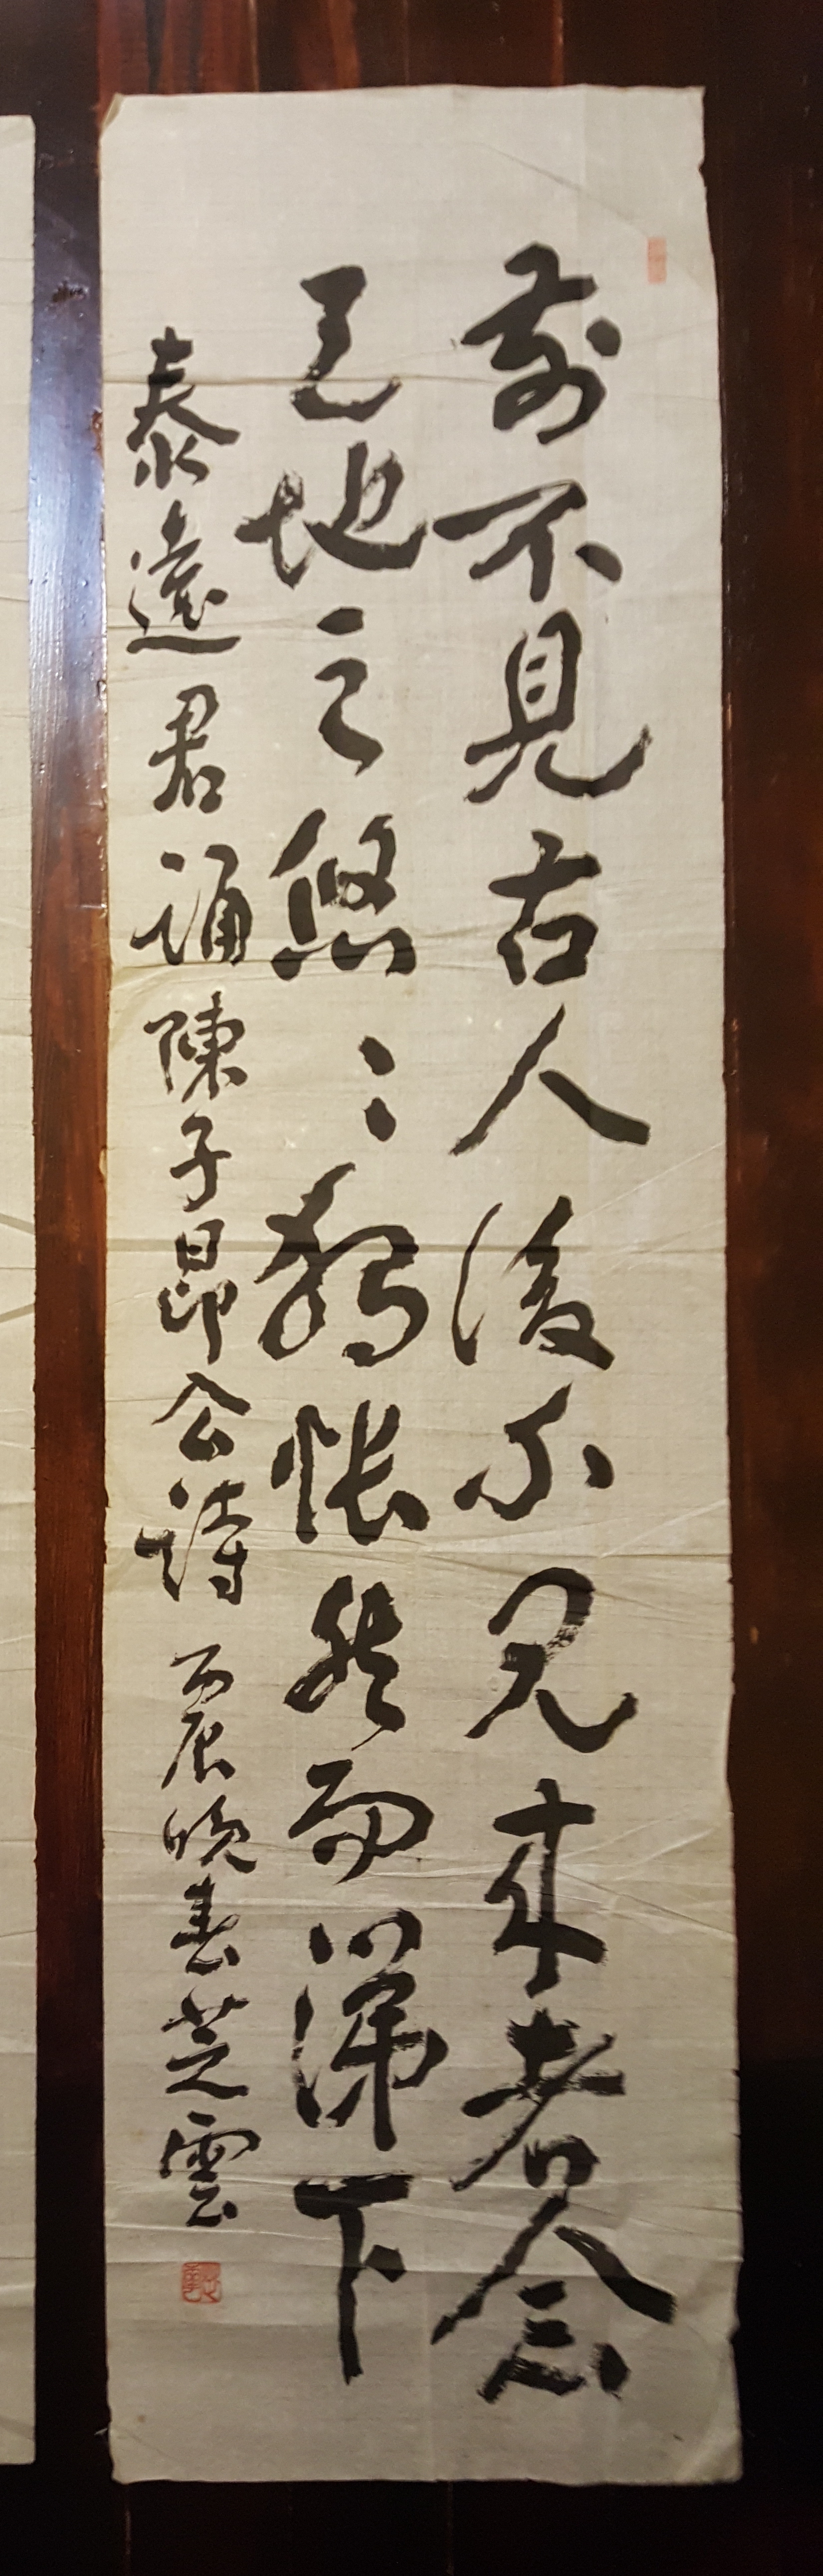 前不見古人後不見来者念
天地之悠々獨悵然而涕下
泰遠君誦陳子昂公詩 丙辰晚春芝雲